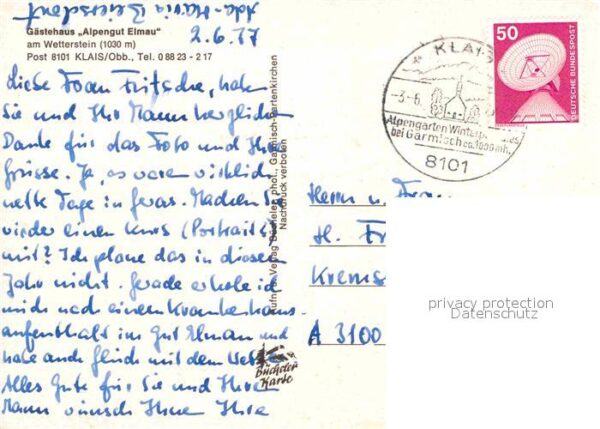 Ada-Maria Beiersdorf
2.6.77
Gästehaus „Alpengut Elmau"
am Wetterstein (1030 m)
Post 8101 KLAIS/Obb., Tel. 0 88 23 - 2 17
Liebe Frau Fritsche, haben
Sie und Ihr Mann herzlichen
Dank für das Foto und Ihre
Grüsse. Ja, es waren wirklich
nette Tage in Machen Sie
wieder einen Kurs (Portrait?)
mit? Ich plane das in diesem
Jahr nicht. Gerade erhole ich
mich nach einem Krankenhaus-
aufenthalt im Gut Elmau und
habe auch Glück mit dem
Alles Gute für Sie und Ihren
Mann wünscht Ihnen Ihre
Verlag phot., Garmisch-Partenkirchen
Nachdruck verboten
Büchler
Karte
KLAIS
-3.-6.
Alpengarten Winter
bei Garmisch ca. 1000 m h.
8101
50
DEUTSCHE BUNDESPOST
Herrn u.
H.
Krems
A 3100
privacy protection
Datenschutz